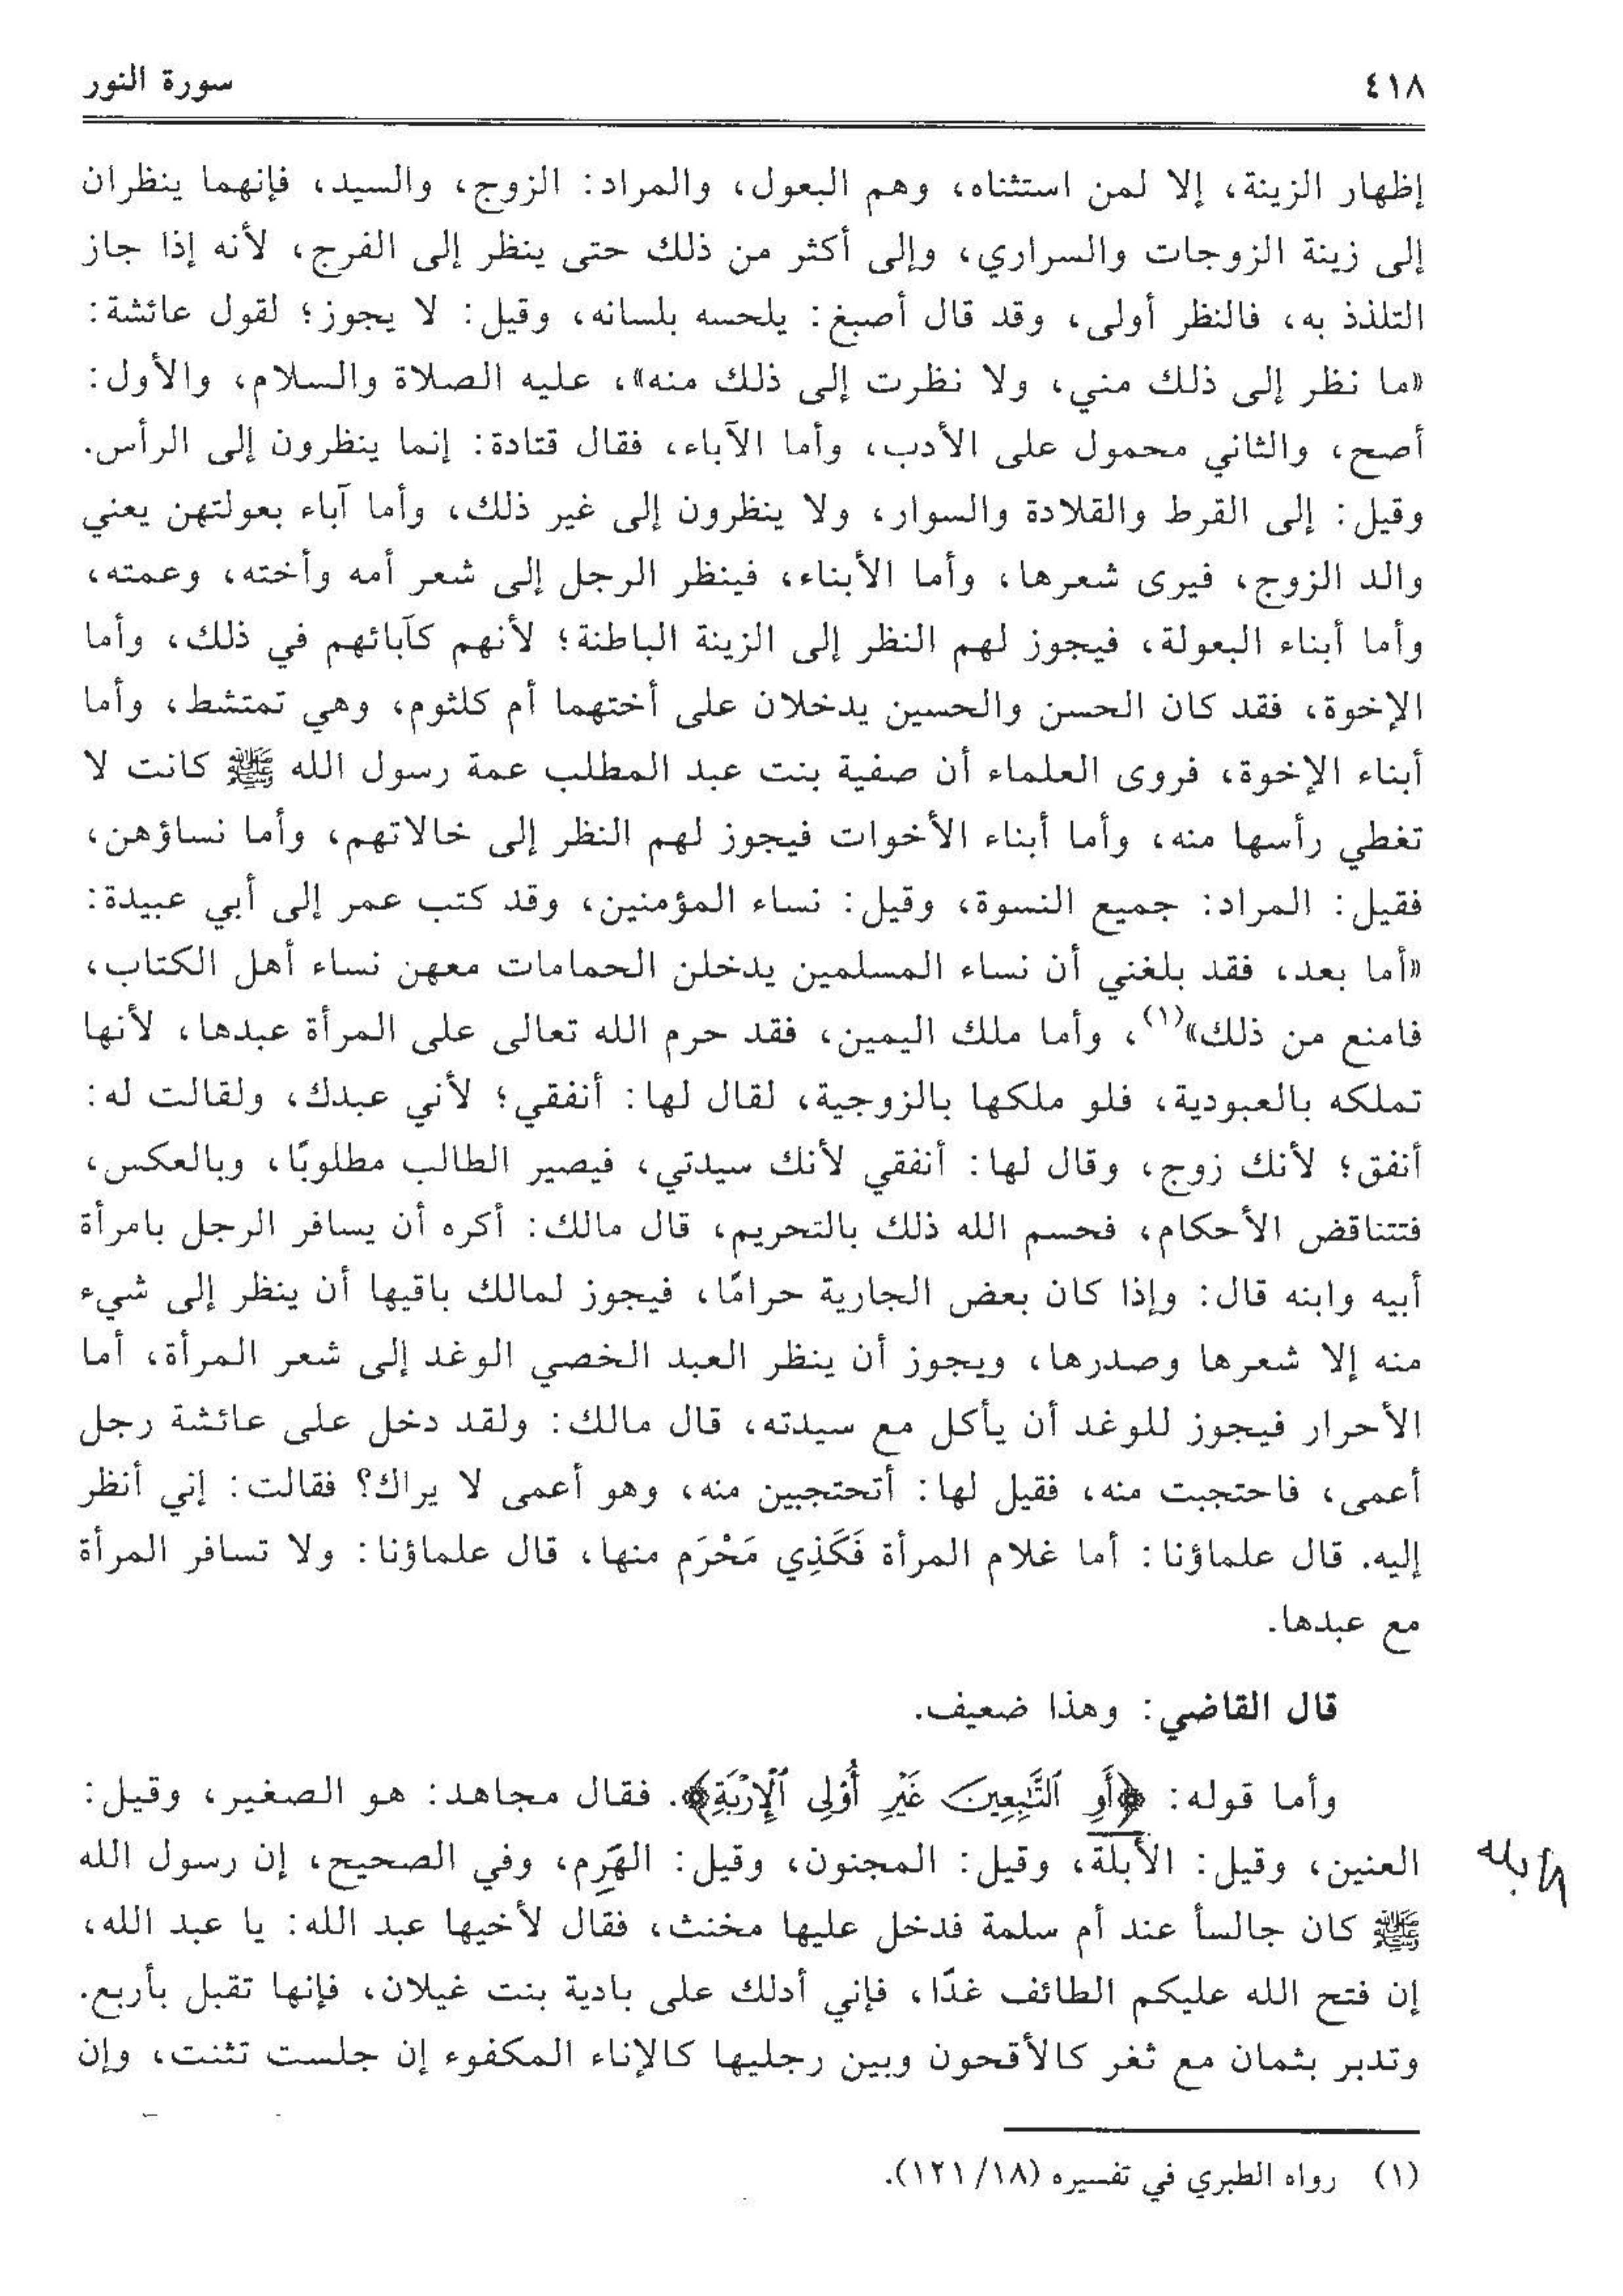 ٤١٨ سورة النور
إظهار الزينة، إلا لمن استثناه، وهم البعول، والمراد: الزوج، والسيد، فإنهما ينظران
إلى زينة الزوجات والسراري، وإلى أكثر من ذلك حتى ينظر إلى الفرج، لأنه إذا جاز
التلذذ به، فالنظر أولى، وقد قال أصبغ: يلحسه بلسانه، وقيل: لا يجوز؛ لقول عائشة:
«ما نظر إلى ذلك مني، ولا نظرت إلى ذلك منه»، عليه الصلاة والسلام، والأول:
أصح، والثاني محمول على الأدب، وأما الآباء، فقال قتادة: إنما ينظرون إلى الرأس.
وقيل: إلى القرط والقلادة والسوار، ولا ينظرون إلى غير ذلك، وأما آباء بعولتهن يعني
والد الزوج، فيرى شعرها، وأما الأبناء، فينظر الرجل إلى شعر أمه وأخته، وعمته،
وأما أبناء البعولة، فيجوز لهم النظر إلى الزينة الباطنة؛ لأنهم كآبائهم في ذلك، وأما
الإخوة، فقد كان الحسن والحسين يدخلان على أختهما أم كلثوم، وهي تمتشط، وأما
أبناء الإخوة، فروى العلماء أن صفية بنت عبد المطلب عمة رسول الله ﷺ كانت لا
تغطي رأسها منه، وأما أبناء الأخوات فيجوز لهم النظر إلى خالاتهم، وأما نساؤهن،
فقيل: المراد: جميع النسوة، وقيل: نساء المؤمنين، وقد كتب عمر إلى أبي عبيدة:
«أما بعد، فقد بلغني أن نساء المسلمين يدخلن الحمامات معهن نساء أهل الكتاب،
فامنع من ذلك»(١)، وأما ملك اليمين، فقد حرم الله تعالى على المرأة عبدها، لأنها
تملكه بالعبودية، فلو ملكها بالزوجية، لقال لها: أنفقي؛ لأني عبدك، ولقالت له:
أنفق؛ لأنك زوج، وقال لها: أنفقي لأنك سيدتي، فيصير الطالب مطلوبًا، وبالعكس،
فتتناقض الأحكام، فحسم الله ذلك بالتحريم، قال مالك: أكره أن يسافر الرجل بامرأة
أبيه وابنه قال: وإذا كان بعض الجارية حرامًا، فيجوز لمالك باقيها أن ينظر إلى شيء
منه إلا شعرها وصدرها، ويجوز أن ينظر العبد الخصي الوغد إلى شعر المرأة، أما
الأحرار فيجوز للوغد أن يأكل مع سيدته، قال مالك: ولقد دخل على عائشة رجل
أعمى، فاحتجبت منه، فقيل لها: أتحتجبين منه، وهو أعمى لا يراك؟ فقالت: إني أنظر
إليه. قال علماؤنا: أما غلام المرأة فَكَذِي مَحْرَم منها، قال علماؤنا: ولا تسافر المرأة
مع عبدها.
قال القاضي: وهذا ضعيف.
وأما قوله: ﴿أَوِ ٱلتَّٰبِعِينَ غَيْرِ أُوْلِى ٱلْإِرْبَةِ﴾. فقال مجاهد: هو الصغير، وقيل:
العنين، وقيل: الأبلة، وقيل: المجنون، وقيل: الهَرِم، وفي الصحيح، إن رسول الله
الأبله
ﷺ كان جالسأ عند أم سلمة فدخل عليها مخنث، فقال لأخيها عبد الله: يا عبد الله،
إن فتح الله عليكم الطائف غدًا، فإني أدلك على بادية بنت غيلان، فإنها تقبل بأربع.
وتدبر بثمان مع ثغر كالأقحون وبين رجليها كالإناء المكفوء إن جلست تثنت، وإن
(١) رواه الطبري في تفسيره (١٨/ ١٢١).